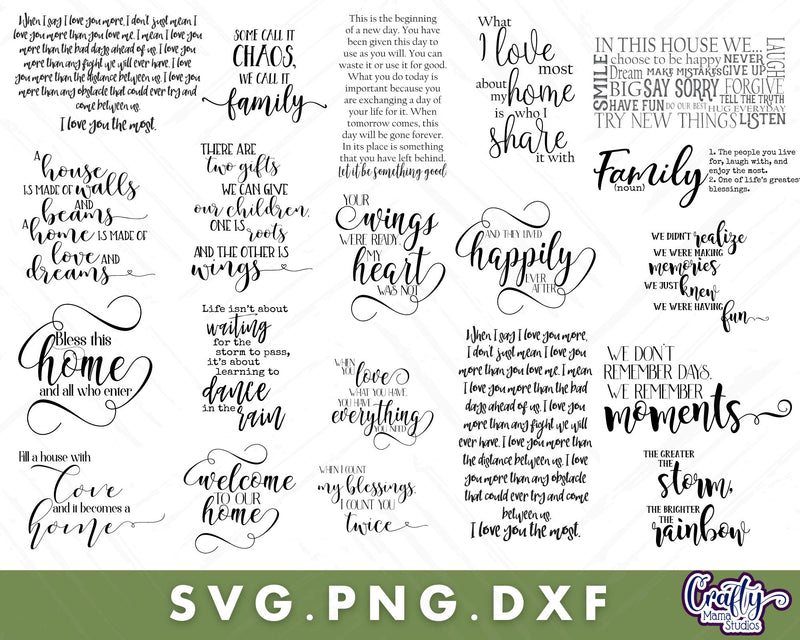 When I say I love you more, I don't just mean I
love you more than you love me. I mean I love you
more than the bad days ahead of us. I love you
more than any fight we will ever have. I love
you more than the distance between us. I love you
more than any obstacle that could ever try and
come between us.
I love you the most.
SOME CALL IT
CHAOS,
WE CALL IT
family
This is the beginning
of a new day. You have
been given this day to
use as you will. You can
waste it or use it for good.
What you do today is
important because you
are exchanging a day of
your life for it. When
tomorrow comes, this
day will be gone forever.
In its place is something
that you have left behind.
Let it be something good
What
I love
most
about
my home
is who I
share
it with
IN THIS HOUSE WE...
choose to be happy NEVER
Dream MAKE MISTAKES GIVE UP
BIG SAY SORRY FORGIVE
HAVE FUN DO OUR BEST TELL THE TRUTH
HUG EVERYDAY
TRY NEW THINGS LISTEN
SMILE
LAUGH
A
house
IS MADE OF walls
AND
beams
A home IS MADE OF
love AND
dreams
THERE ARE
two gifts
WE CAN GIVE
our children.
ONE IS
roots
AND THE OTHER IS
wings
YOUR
wings
WERE READY.
MY
heart
WAS NOT
AND THEY LIVED
happily
EVER
AFTER
Family
(noun)
1. The people you live
for, laugh with, and
enjoy the most.
2. One of life's greates
blessings.
WE DIDN'T realize
WE WERE MAKING
memories
WE JUST knew
WE WERE HAVING
fun
Bless this
home
and all who enter
Life isn't about
waiting
for the
storm to pass,
it's about
learning to
dance
in the
rain
WHEN
YOU love
WHAT YOU HAVE,
YOU HAVE
everything
YOU NEED
When I say I love you more,
I don't just mean I love you
more than you love me. I mean
I love you more than the bad
days ahead of us. I love you
more than any fight we will
ever have. I love you more than
the distance between us. I love
you more than any obstacle
that could ever try and come
between us.
I love you the most.
WE DON'T
REMEMBER DAYS,
WE REMEMBER
moments
Fill a house with
Love
and it becomes a
home
welcome
TO OUR
home
WHEN I COUNT
my blessings,
I COUNT YOU
twice
THE GREATER
THE
storm,
THE BRIGHTER
THE
rainbow
SVG.PNG.DXF
Crafty
Mama
Studios